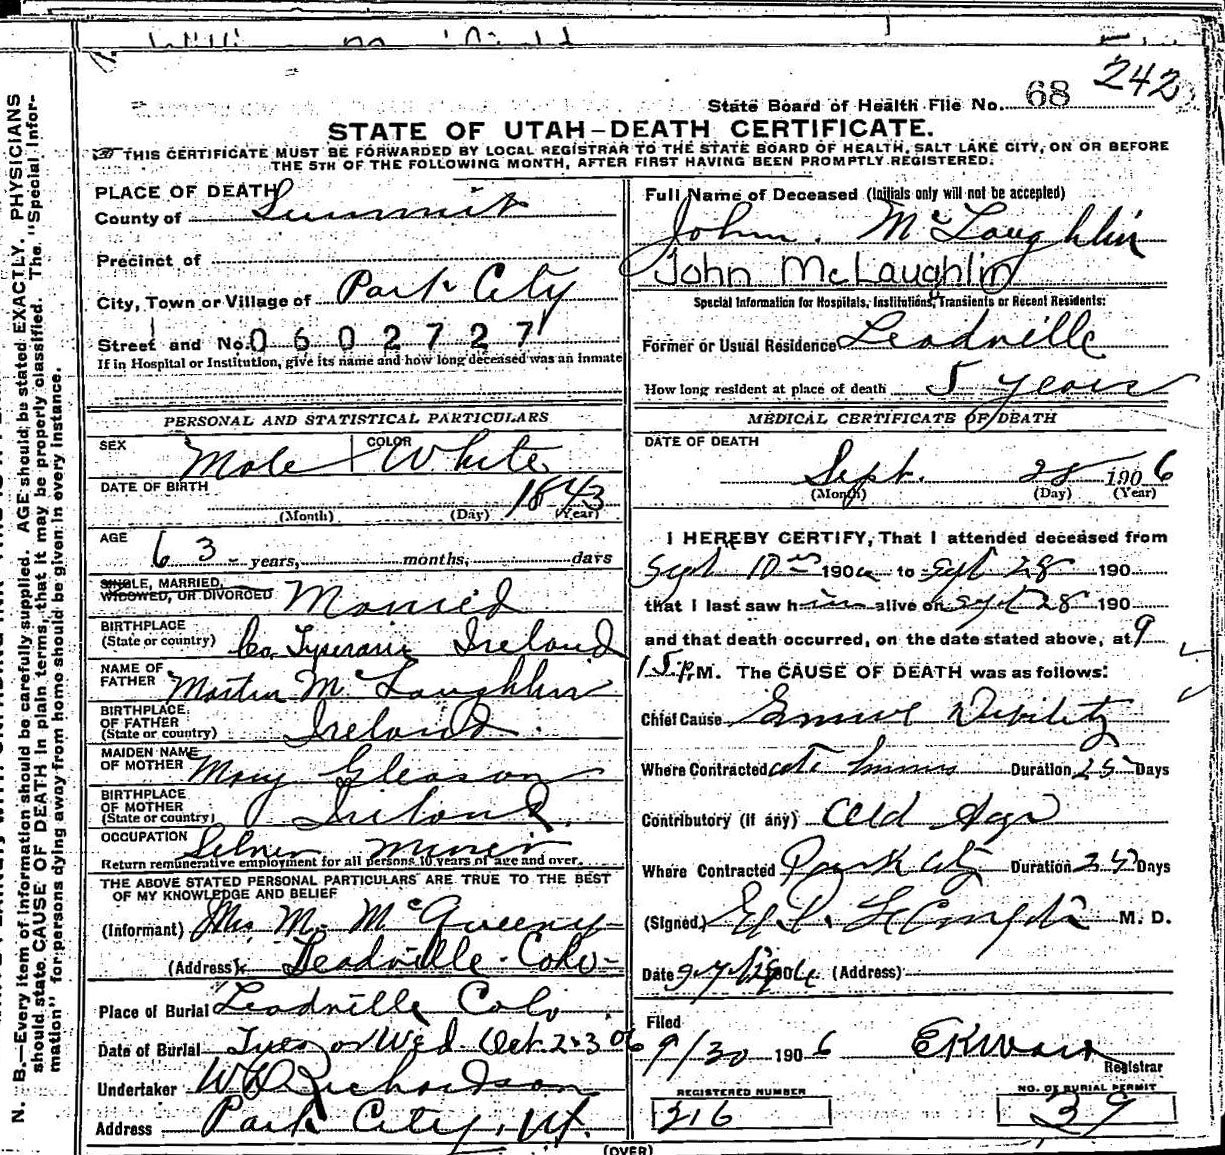 242
State Board of Health File No. 68
STATE OF UTAH—DEATH CERTIFICATE.
THIS CERTIFICATE MUST BE FORWARDED BY LOCAL REGISTRAR TO THE STATE BOARD OF HEALTH, SALT LAKE CITY, ON OR BEFORE
THE 5TH OF THE FOLLOWING MONTH, AFTER FIRST HAVING BEEN PROMPTLY REGISTERED.
PLACE OF DEATH
County of Summit
Precinct of
City, Town or Village of Park City
Street and No. 0602727
If in Hospital or Institution, give its name and how long deceased was an inmate
PERSONAL AND STATISTICAL PARTICULARS
SEX Male COLOR White
DATE OF BIRTH 1843
(Month) (Day) (Year)
AGE 63 years, months, days
SINGLE, MARRIED,
WIDOWED, OR DIVORCED Married
BIRTHPLACE
(State or country) Co. Ireland
NAME OF
FATHER Martin McLaughlin
BIRTHPLACE
OF FATHER
(State or country) Ireland
MAIDEN NAME
OF MOTHER Mary Gleason
BIRTHPLACE
OF MOTHER
(State or country) Ireland
OCCUPATION Silver Miner
Return remunerative employment for all persons 10 years of age and over.
THE ABOVE STATED PERSONAL PARTICULARS ARE TRUE TO THE BEST
OF MY KNOWLEDGE AND BELIEF
(Informant) Mrs M. McGueeny
(Address) Leadville Colo
Place of Burial Leadville Colo
Date of Burial Tues or Wed Oct. 2-3 06
Undertaker W D Richardson
Address Park City, Ut.
Full Name of Deceased (Initials only will not be accepted)
John McLaughlin
John McLaughlin
Special Information for Hospitals, Institutions, Transients or Recent Residents:
Former or Usual Residence Leadville
How long resident at place of death 5 years
MEDICAL CERTIFICATE OF DEATH
DATE OF DEATH
Sept. 28 1906
(Month) (Day) (Year)
I HEREBY CERTIFY, That I attended deceased from
Sept 10 1906 to Sept 28 190
that I last saw him alive on Sept 28 190
and that death occurred, on the date stated above, at 9
15 P.M. The CAUSE OF DEATH was as follows:
Chief Cause Debility
Where Contracted Duration 25 Days
Contributory (if any) Old Age
Where Contracted Park City Duration 25 Days
(Signed) M. D.
Date 1906 (Address)
Filed
9/30 1906
Registrar
REGISTERED NUMBER
316
NO. OF BURIAL PERMIT
39
(OVER)
N. B.—Every item of information should be carefully supplied. AGE should be stated EXACTLY. PHYSICIANS
should state CAUSE OF DEATH in plain terms, that it may be properly classified. The "Special Infor-
mation" for persons dying away from home should be given in every instance.